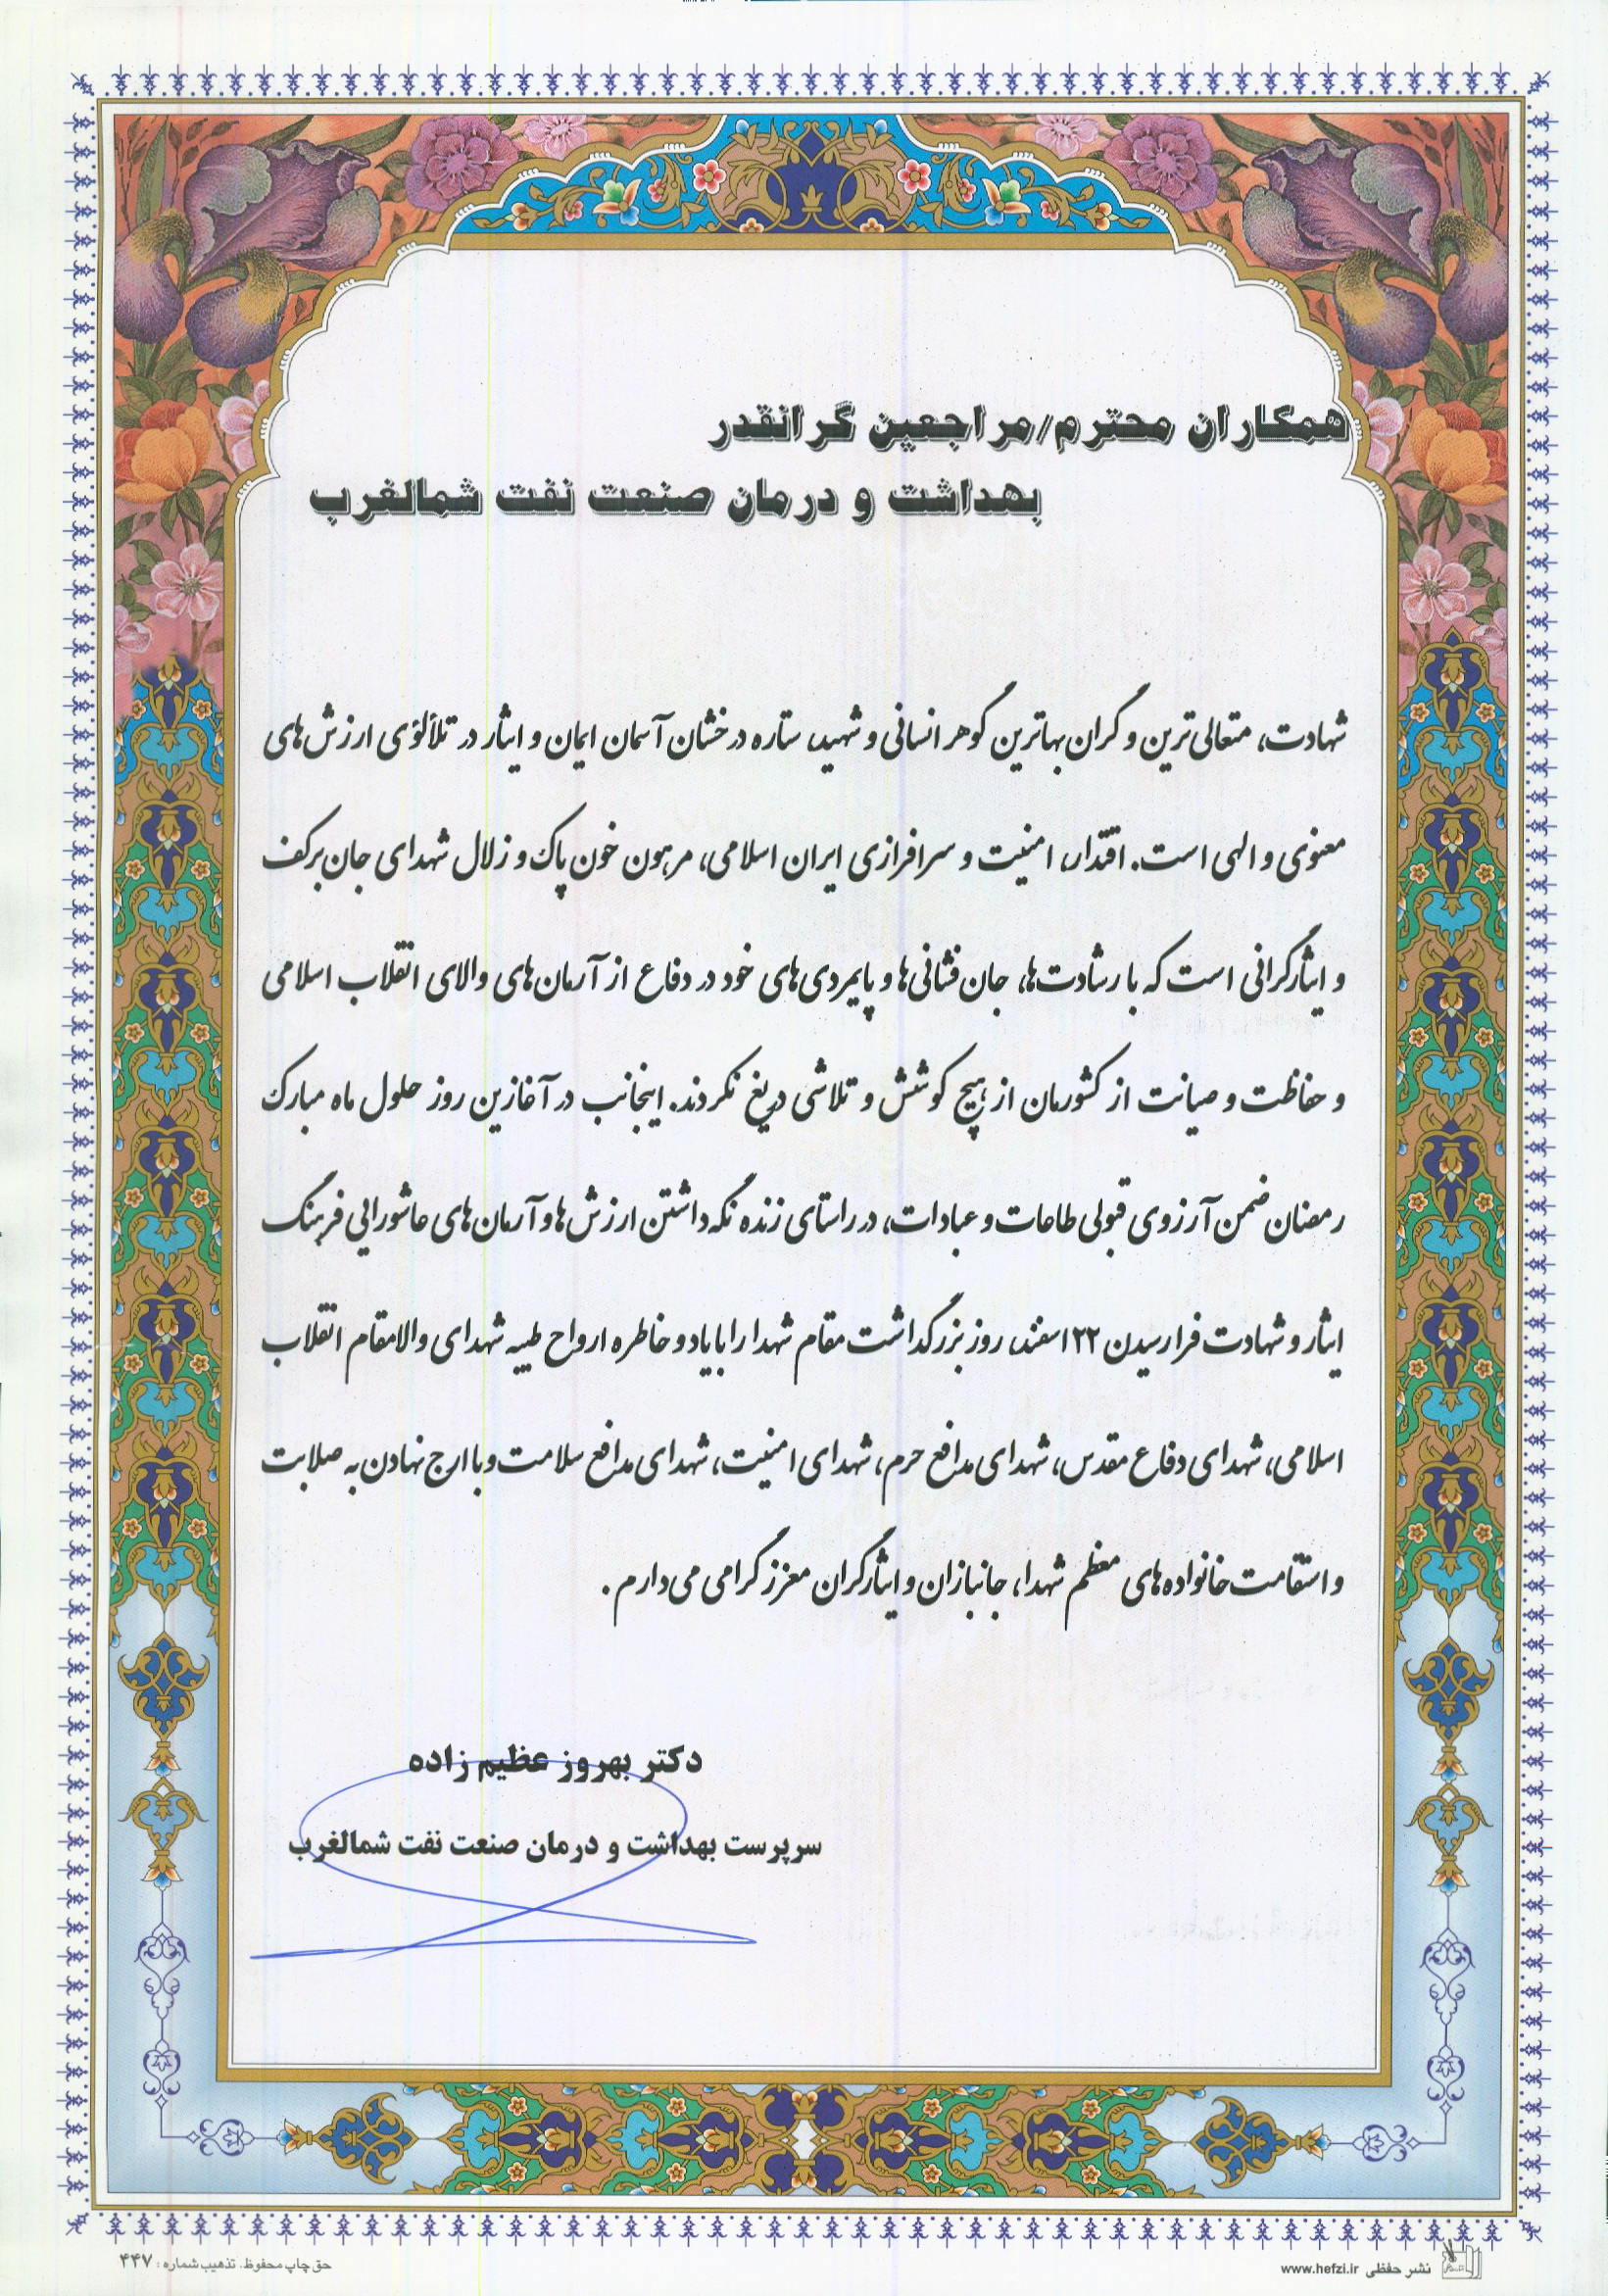 همکاران محترم/مراجعین گرانقدر
بهداشت و درمان صنعت نفت شمالغرب
شهادت، متعالی‌ترین و گران‌بهاترین گوهر انسانی و شهید، ستاره درخشان آسمان ایمان و ایثار در تلألؤی ارزش‌های
معنوی و الهی است. اقتدار، امنیت و سرافرازی ایران اسلامی، مرهون خون پاک و زلال شهدای جان برکف
و ایثارگرانی است که با رشادت‌ها، جان‌فشانی‌ها و پایمردی‌های خود در دفاع از آرمان‌های والای انقلاب اسلامی
و حفاظت و صیانت از کشورمان از هیچ کوشش و تلاشی دریغ نکردند. اینجانب در آغازین روز حلول ماه مبارک
رمضان ضمن آرزوی قبولی طاعات و عبادات، در راستای زنده نگه داشتن ارزش‌ها و آرمان‌های عاشورایی فرهنگ
ایثار و شهادت فرا رسیدن ۲۲ اسفند، روز بزرگداشت مقام شهدا را با یاد و خاطره ارواح طیبه شهدای والامقام انقلاب
اسلامی، شهدای دفاع مقدس، شهدای مدافع حرم، شهدای امنیت، شهدای مدافع سلامت و با ارج نهادن به صلابت
و استقامت خانواده‌های معظم شهدا، جانبازان و ایثارگران معزز گرامی می‌دارم.
دکتر بهروز عظیم زاده
سرپرست بهداشت و درمان صنعت نفت شمالغرب
نشر حفظی www.hefzi.ir
حق چاپ محفوظ. تذهیب شماره: ۴۴۷